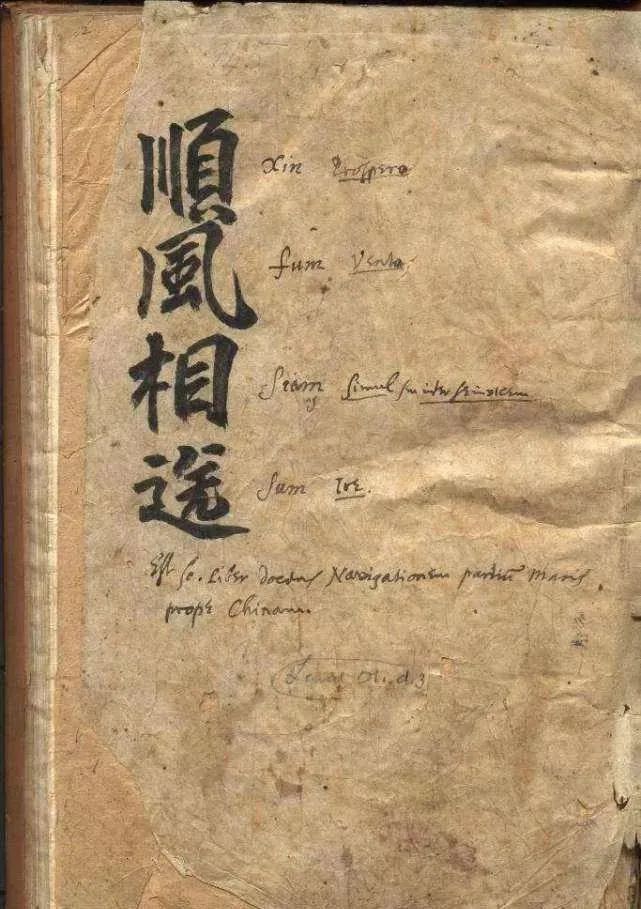 順 Xin Prospero
風 fum Vento
相 Siam simul seu inter seinvicem
ng
送 Sum Ire.
Est sc. Liber docens Navigationem partiū Maris
prope Chinam.